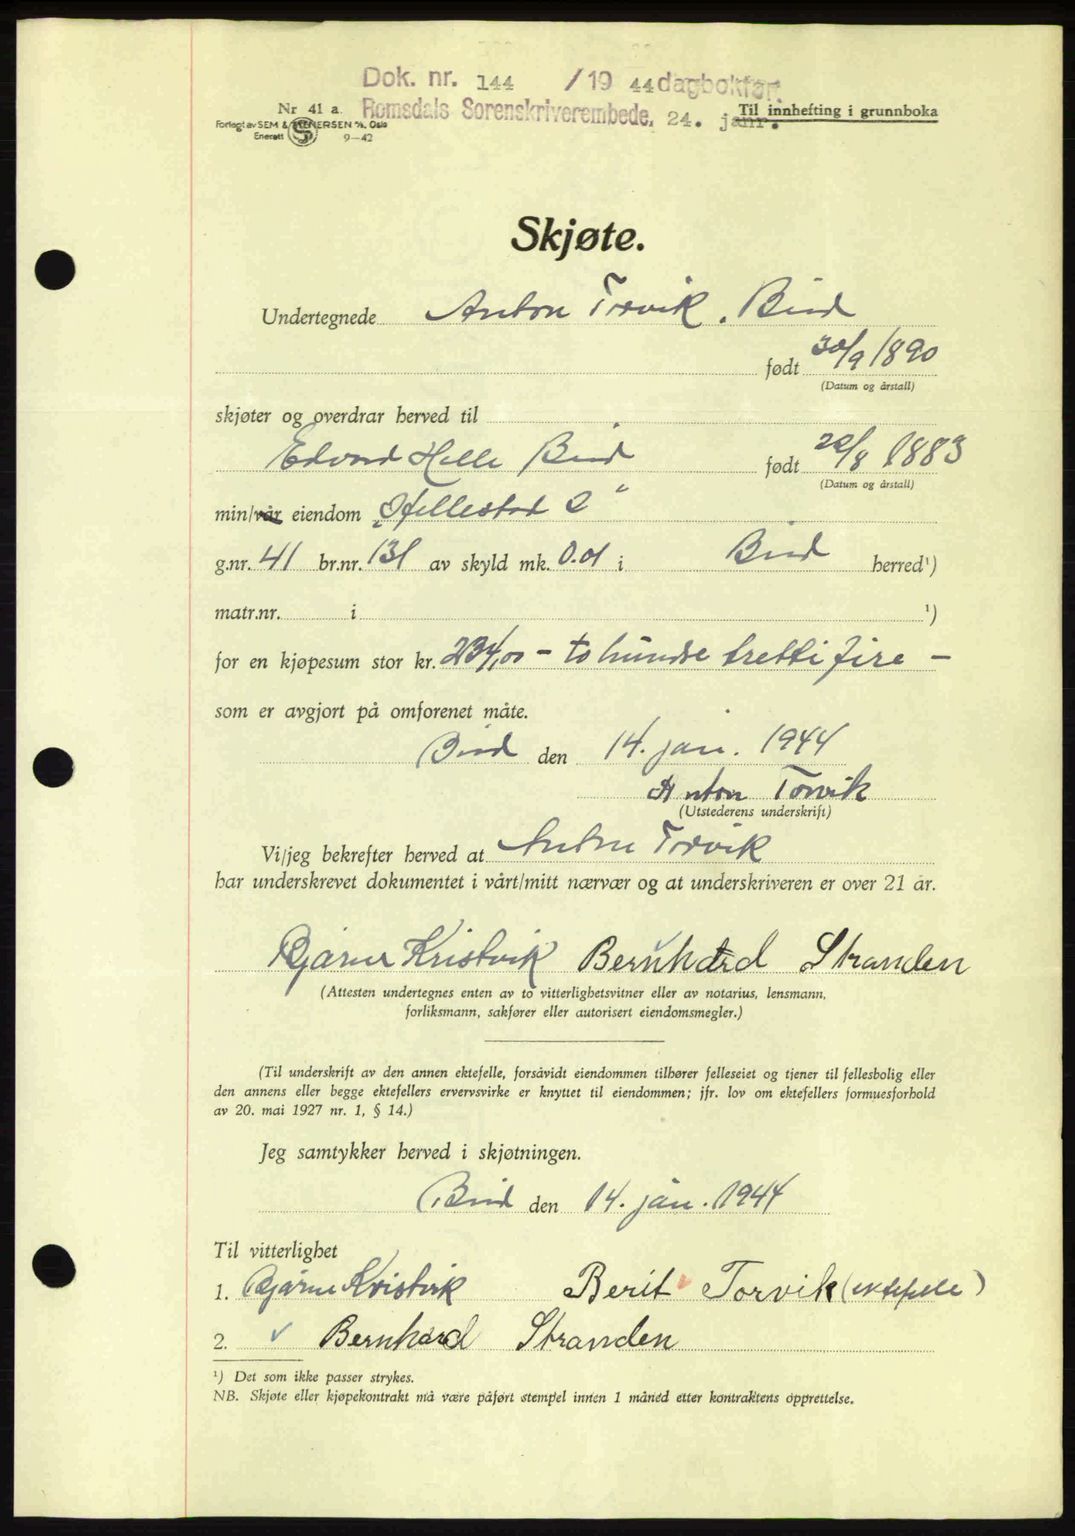 Dok. nr. 144 / 19 44 dagbokført
Nr 41 a. Romsdals Sorenskriverembede, 24. janr. Til innhefting i grunnboka
Forlagt av SEM & STENERSEN A/S, Oslo
Enerett 9-42
Skjøte.
Undertegnede Anton Torvik, Bud
født 30/9 1890
(Datum og årstall)
skjøter og overdrar herved til
Edvard Helle Bud født 20/8 1883
(Datum og årstall)
min/vår eiendom "Fjellestad 2"
g.nr. 41 br.nr. 131 av skyld mk. 0.01 i Bud herred¹)
matr.nr. i ¹)
for en kjøpesum stor kr. 234,00 - to hundre tretti fire -
som er avgjort på omforenet måte.
Bud den 14. jan. 1944
Anton Torvik
(Utstederens underskrift)
Vi/jeg bekrefter herved at Anton Torvik
har underskrevet dokumentet i vårt/mitt nærvær og at underskriveren er over 21 år.
Bjarne Kristvik Bernhard Stranden
(Attesten undertegnes enten av to vitterlighetsvitner eller av notarius, lensmann,
forliksmann, sakfører eller autorisert eiendomsmegler.)
(Til underskrift av den annen ektefelle, forsåvidt eiendommen tilhører felleseiet og tjener til fellesbolig eller
den annens eller begge ektefellers ervervsvirke er knyttet til eiendommen; jfr. lov om ektefellers formuesforhold
av 20. mai 1927 nr. 1, § 14.)
Jeg samtykker herved i skjøtningen.
Bud den 14. jan. 1944
Til vitterlighet
1. Bjarne Kristvik Berit Torvik (ektefelle)
2. Bernhard Stranden
¹) Det som ikke passer strykes.
NB. Skjøte eller kjøpekontrakt må være påført stempel innen 1 måned etter kontraktens opprettelse.